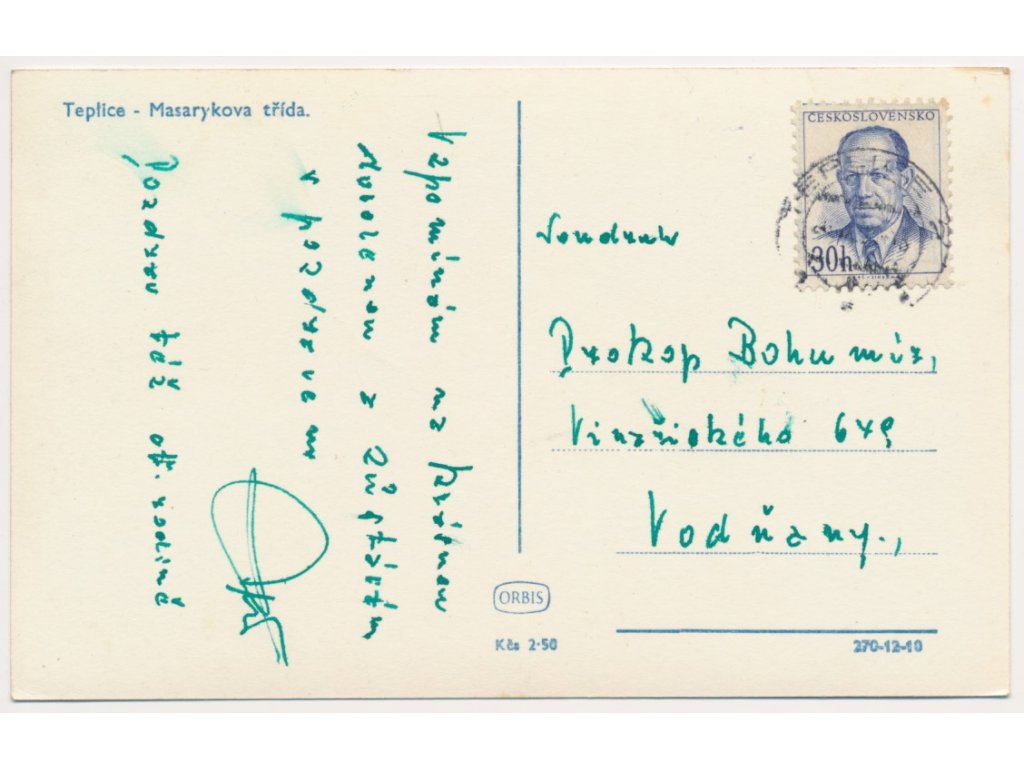 Teplice - Masarykova třída.
ČESKOSLOVENSKO
30h
Vzpomínám na krásnou
dovolenou a zůstávám
s pozdravem
Pozdrav též ct. rodině
Soudruh
Prokop Bohumír,
Vinařického 649
Vodňany.,
ORBIS
Kčs 2·50
270-12-10